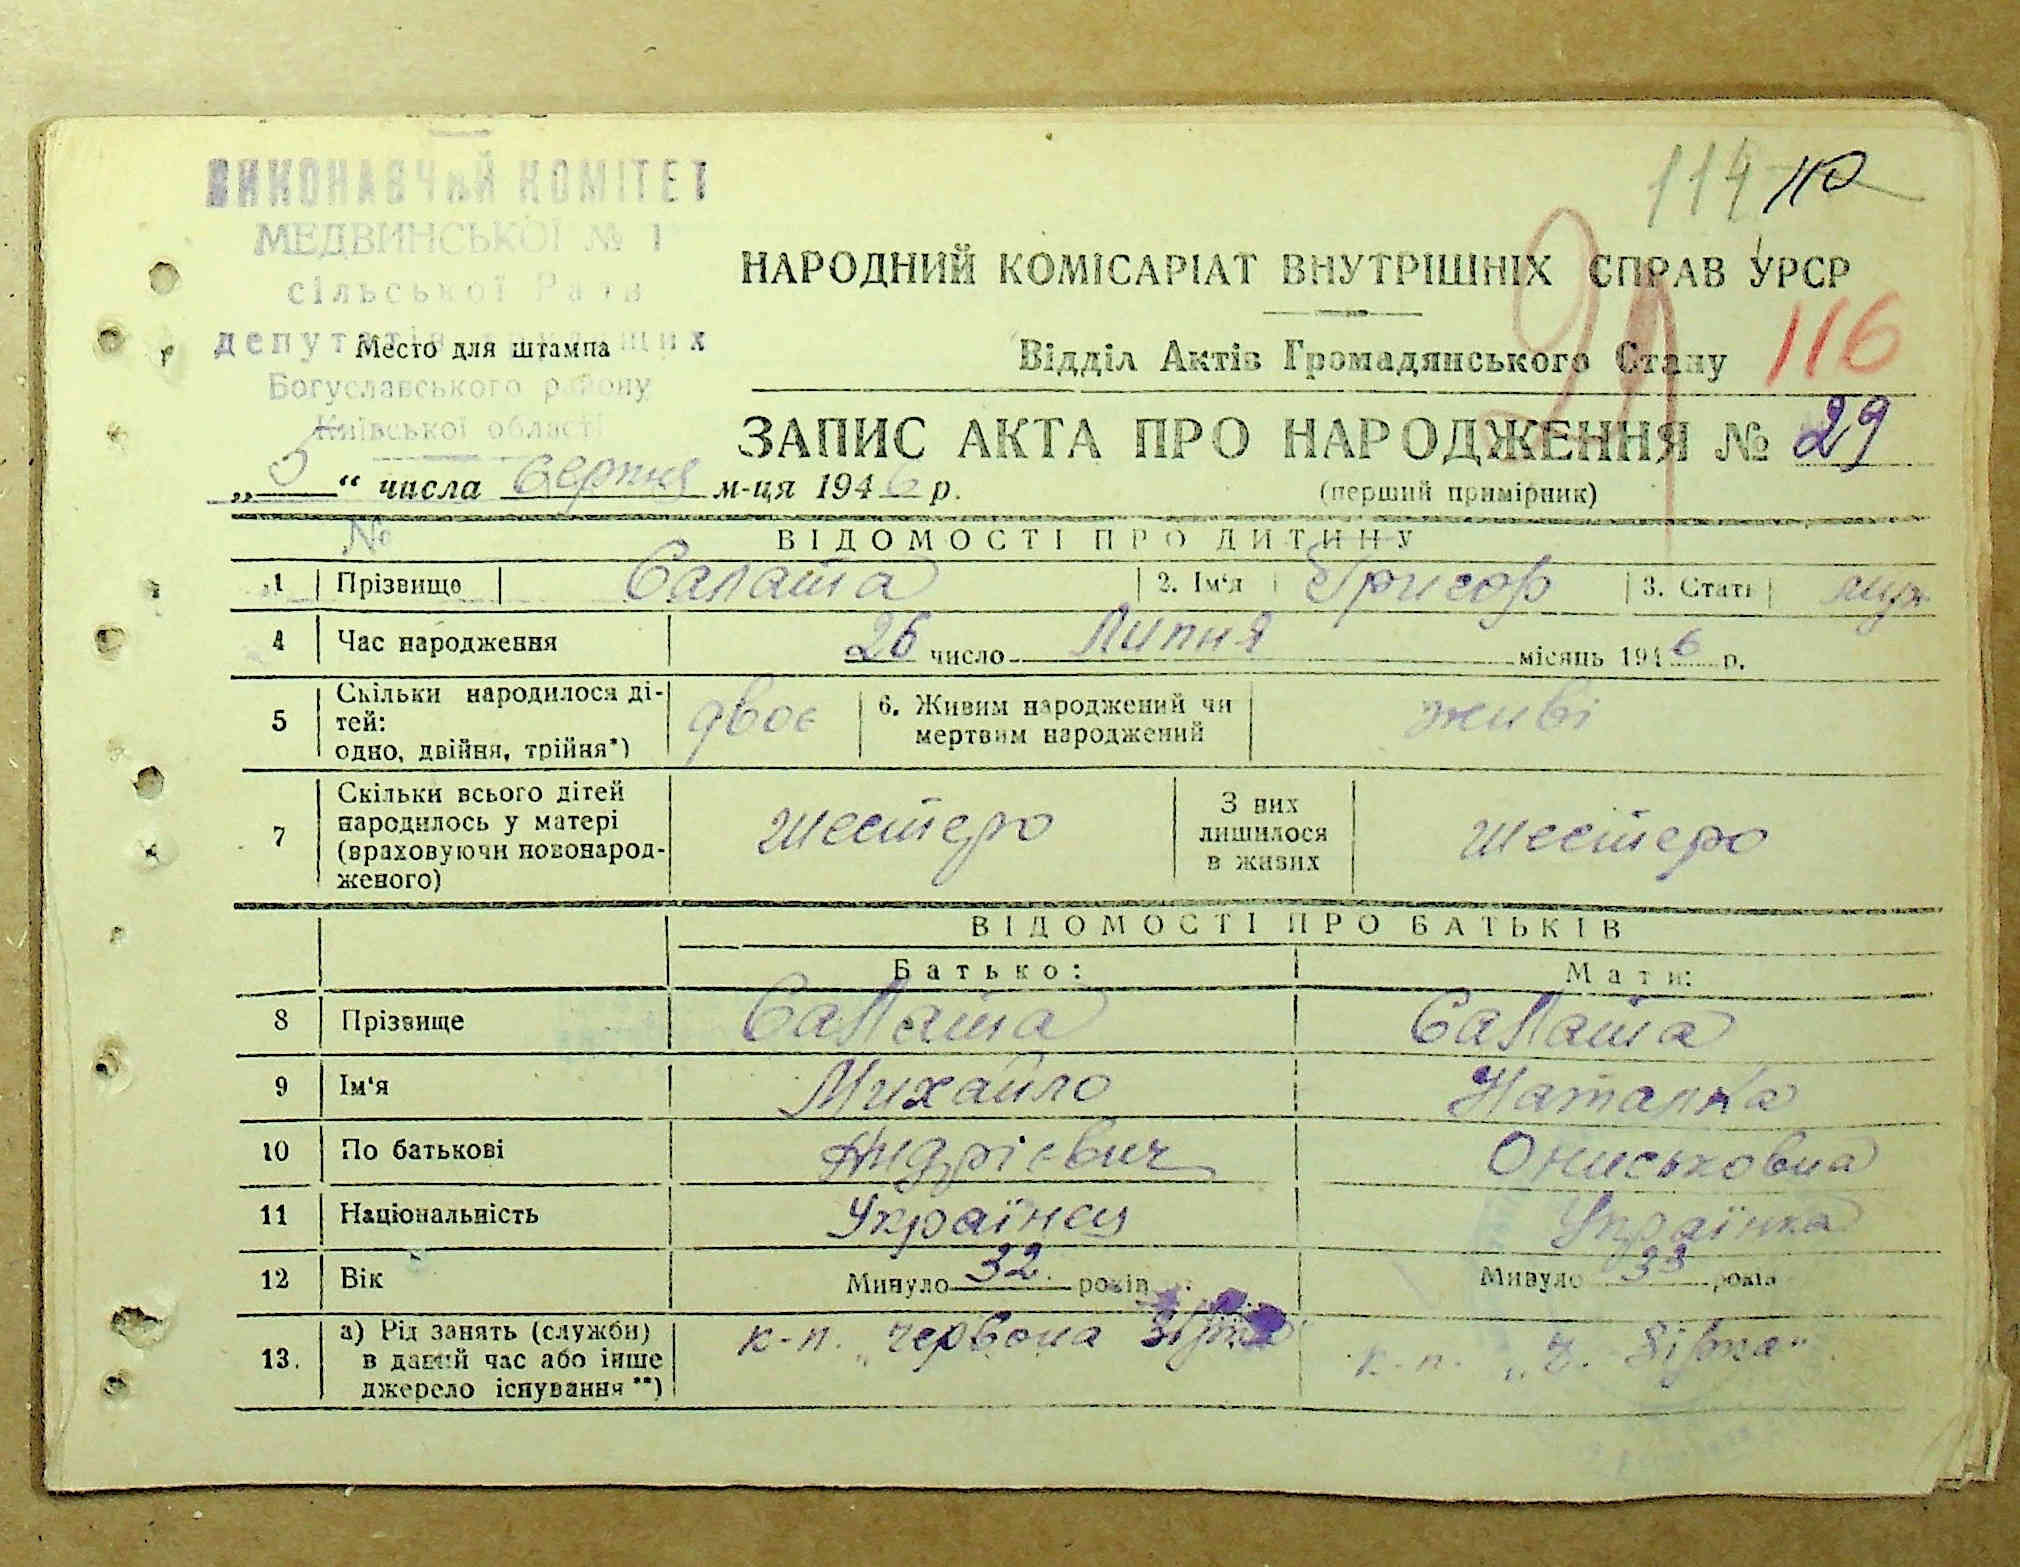 114 110
ВИКОНАВЧИЙ КОМІТЕТ
МЕДВИНСЬКОЇ № 1
сільської Ради
депутатів трудящих
Место для штампа
Богуславського району
Київської області
НАРОДНИЙ КОМІСАРІАТ ВНУТРІШНІХ СПРАВ УРСР
Відділ Актів Громадянського Стану
116
21
ЗАПИС АКТА ПРО НАРОДЖЕННЯ № 29
„5“ числа серпня м-ця 1946 р.
(перший примірник)
№
ВІДОМОСТІ ПРО ДИТИНУ
1 Прізвище Салата 2. Ім'я Григор 3. Стать муж
4 Час народження 26 число Липня місяць 1946 р.
5 Скільки народилося ді-
тей:
одно, двійня, трійня*)
двоє
6. Живим народжений чи
мертвим народжений
живі
7 Скільки всього дітей
народилось у матері
(враховуючи новонарод-
женого)
шестеро
З них
лишилося
в живих
шестеро
ВІДОМОСТІ ПРО БАТЬКІВ
Батько: Мати:
8 Прізвище Салата Салата
9 Ім'я Михайло Наталка
10 По батькові Андрієвич Ониськовна
11 Національність Українец Українка
12 Вік Минуло 32 років Минуло 33 років
13. а) Рід занять (служби)
в даний час або інше
джерело існування **)
к-п. „червона Зірка“ к-п. „Ч. Зірка“